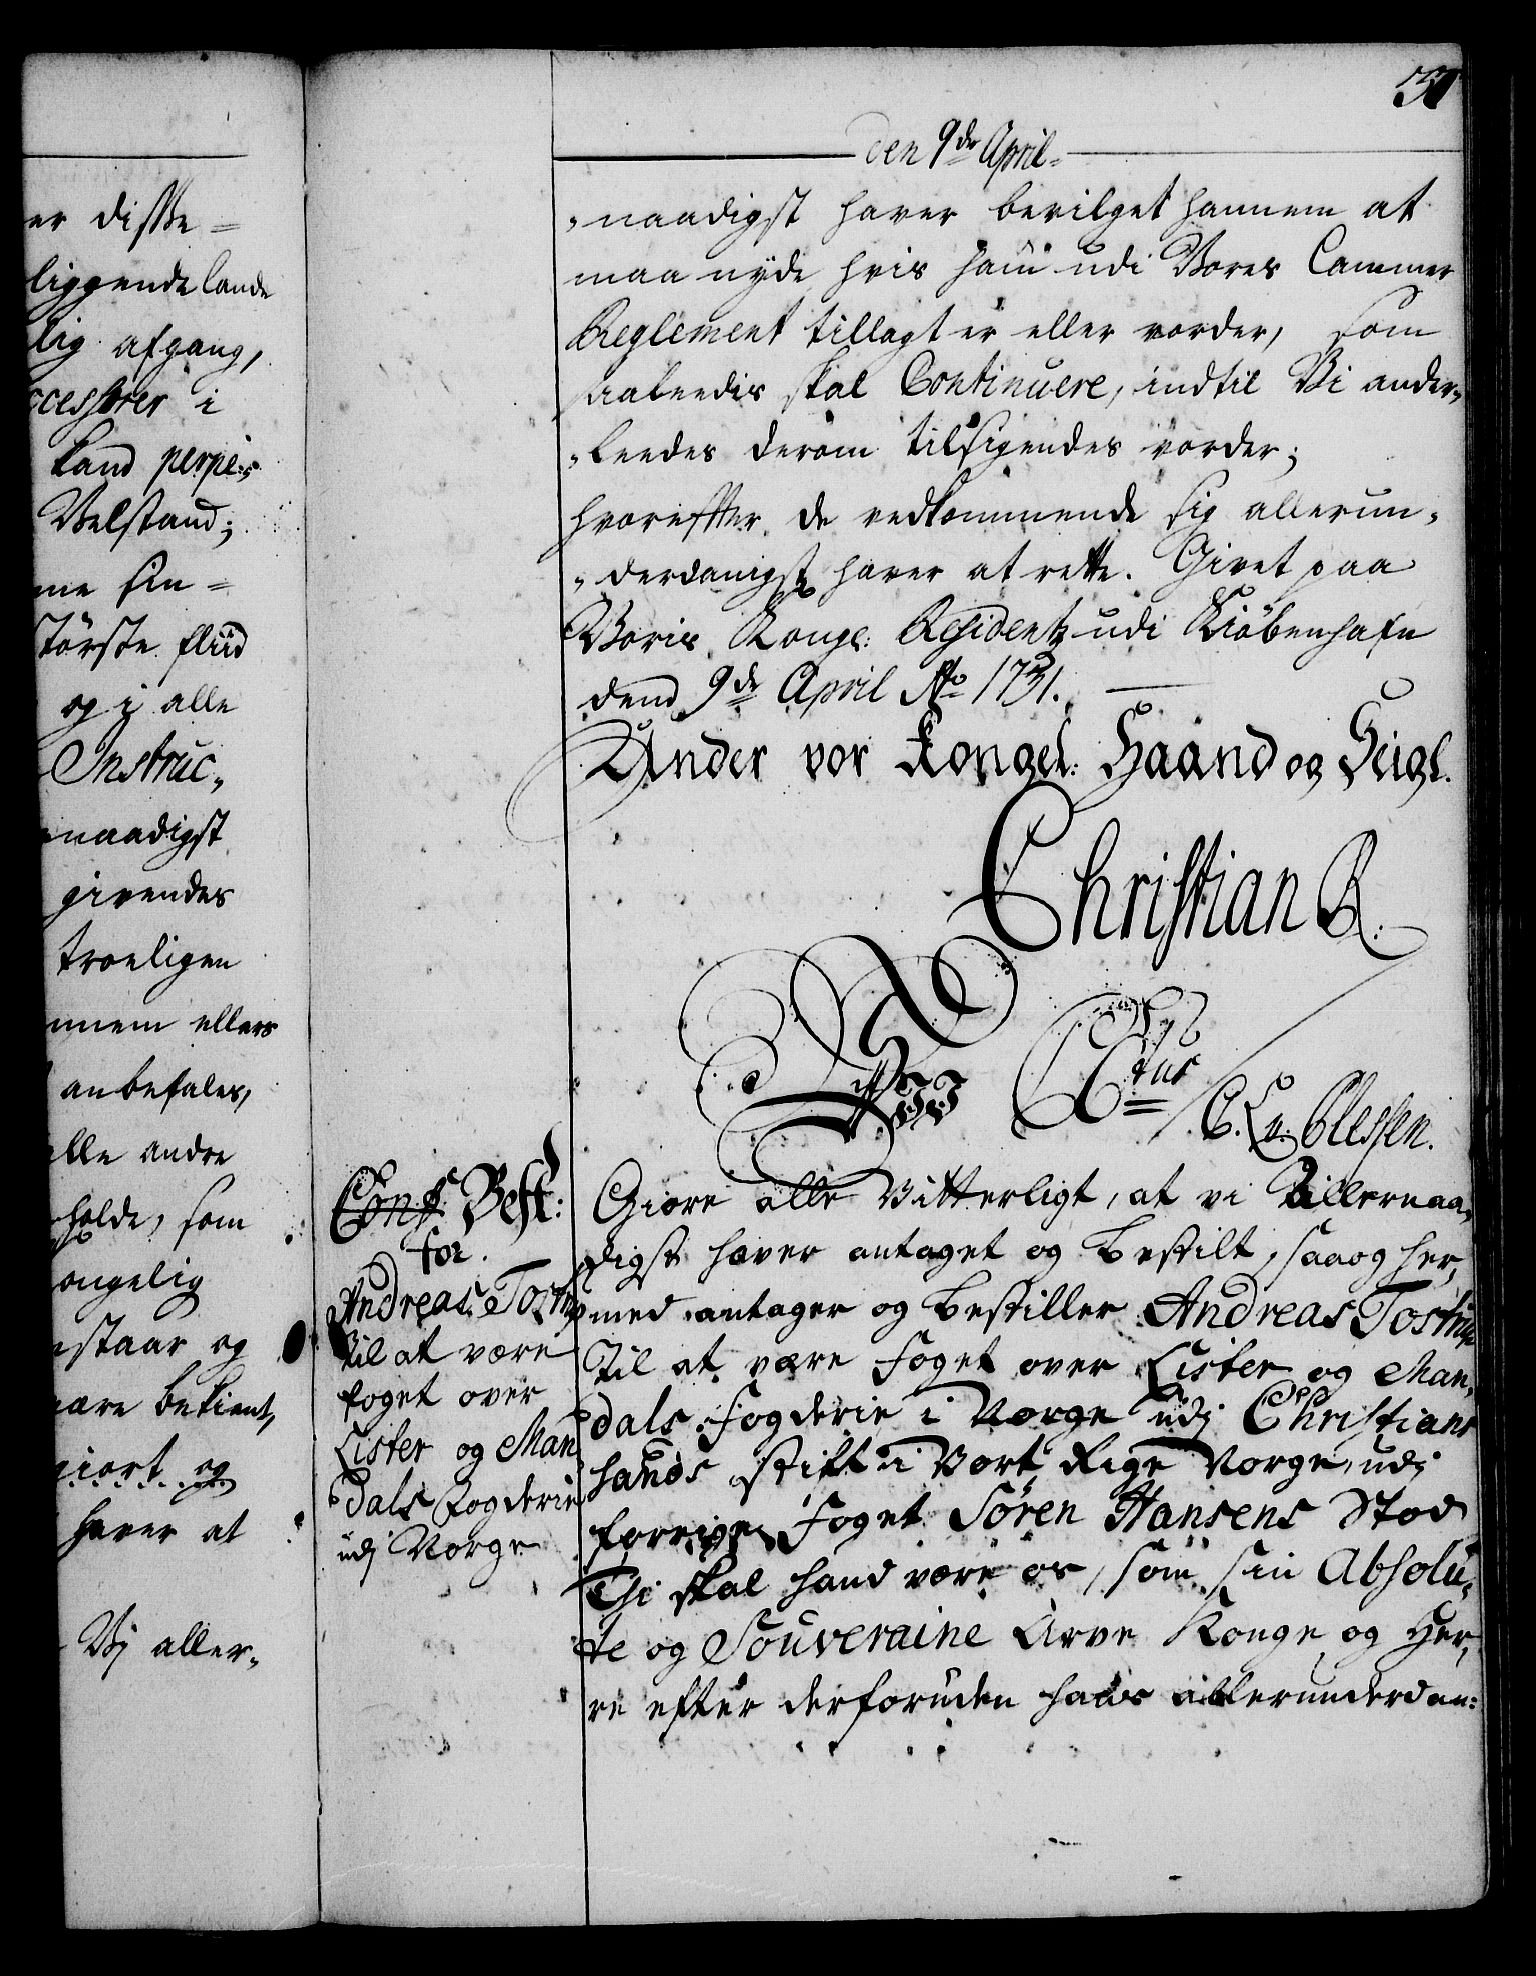 er disse=
liggende lande
lig afgang,
ccessorer i
Land perpe=
Velstand;
me sin=
störste fliid
og i alle
Instruc„
naadigst
givendes
troeligen
nnem ellers
anbefales,
alle andre
holde, som
ongelig
staar og
være bekient,
giort og
haver at
Vj aller„
31
den 9de April
„naadigst haver bevilget hannem at
maa nyde hvis ham udi Vores Cammer
Reglement tillagt er eller vorder, som
saaleedis skal Continuere, indtil Vi ander„
„leedes derom tilsigendes vorder;
hvorefter de vedkommende sig allerun„
„derdanigst haver at rette. Givet paa
Voris Kongl: Residentz udi Kiöbenhafn
dend 9de April Ao 1731.
Under vor Kongel: Haand og Seigl.
Christian R.
C. A. v. Plessen.
Conf. Best:
for
Andreas Tostrup
til at være
foget over
Lister og Man
dals fogderie
udj Norge
Giøre alle Vitterligt, at vi Allernaa„
digst haver antaget og bestilt, saa og her„
med antager og bestiller Andreas Tostrup
til at være foget over Lister og Man„
dals fogderie i Norge udj Christians
sands Stift i Vort Rige Norge, udj
forrige Foget Sören Hansens Stod
Thi skal hand være os, som sin Absolu„
te og Souveraine Arve Konge og Her„
re efter derforuden hans allerunderdan: